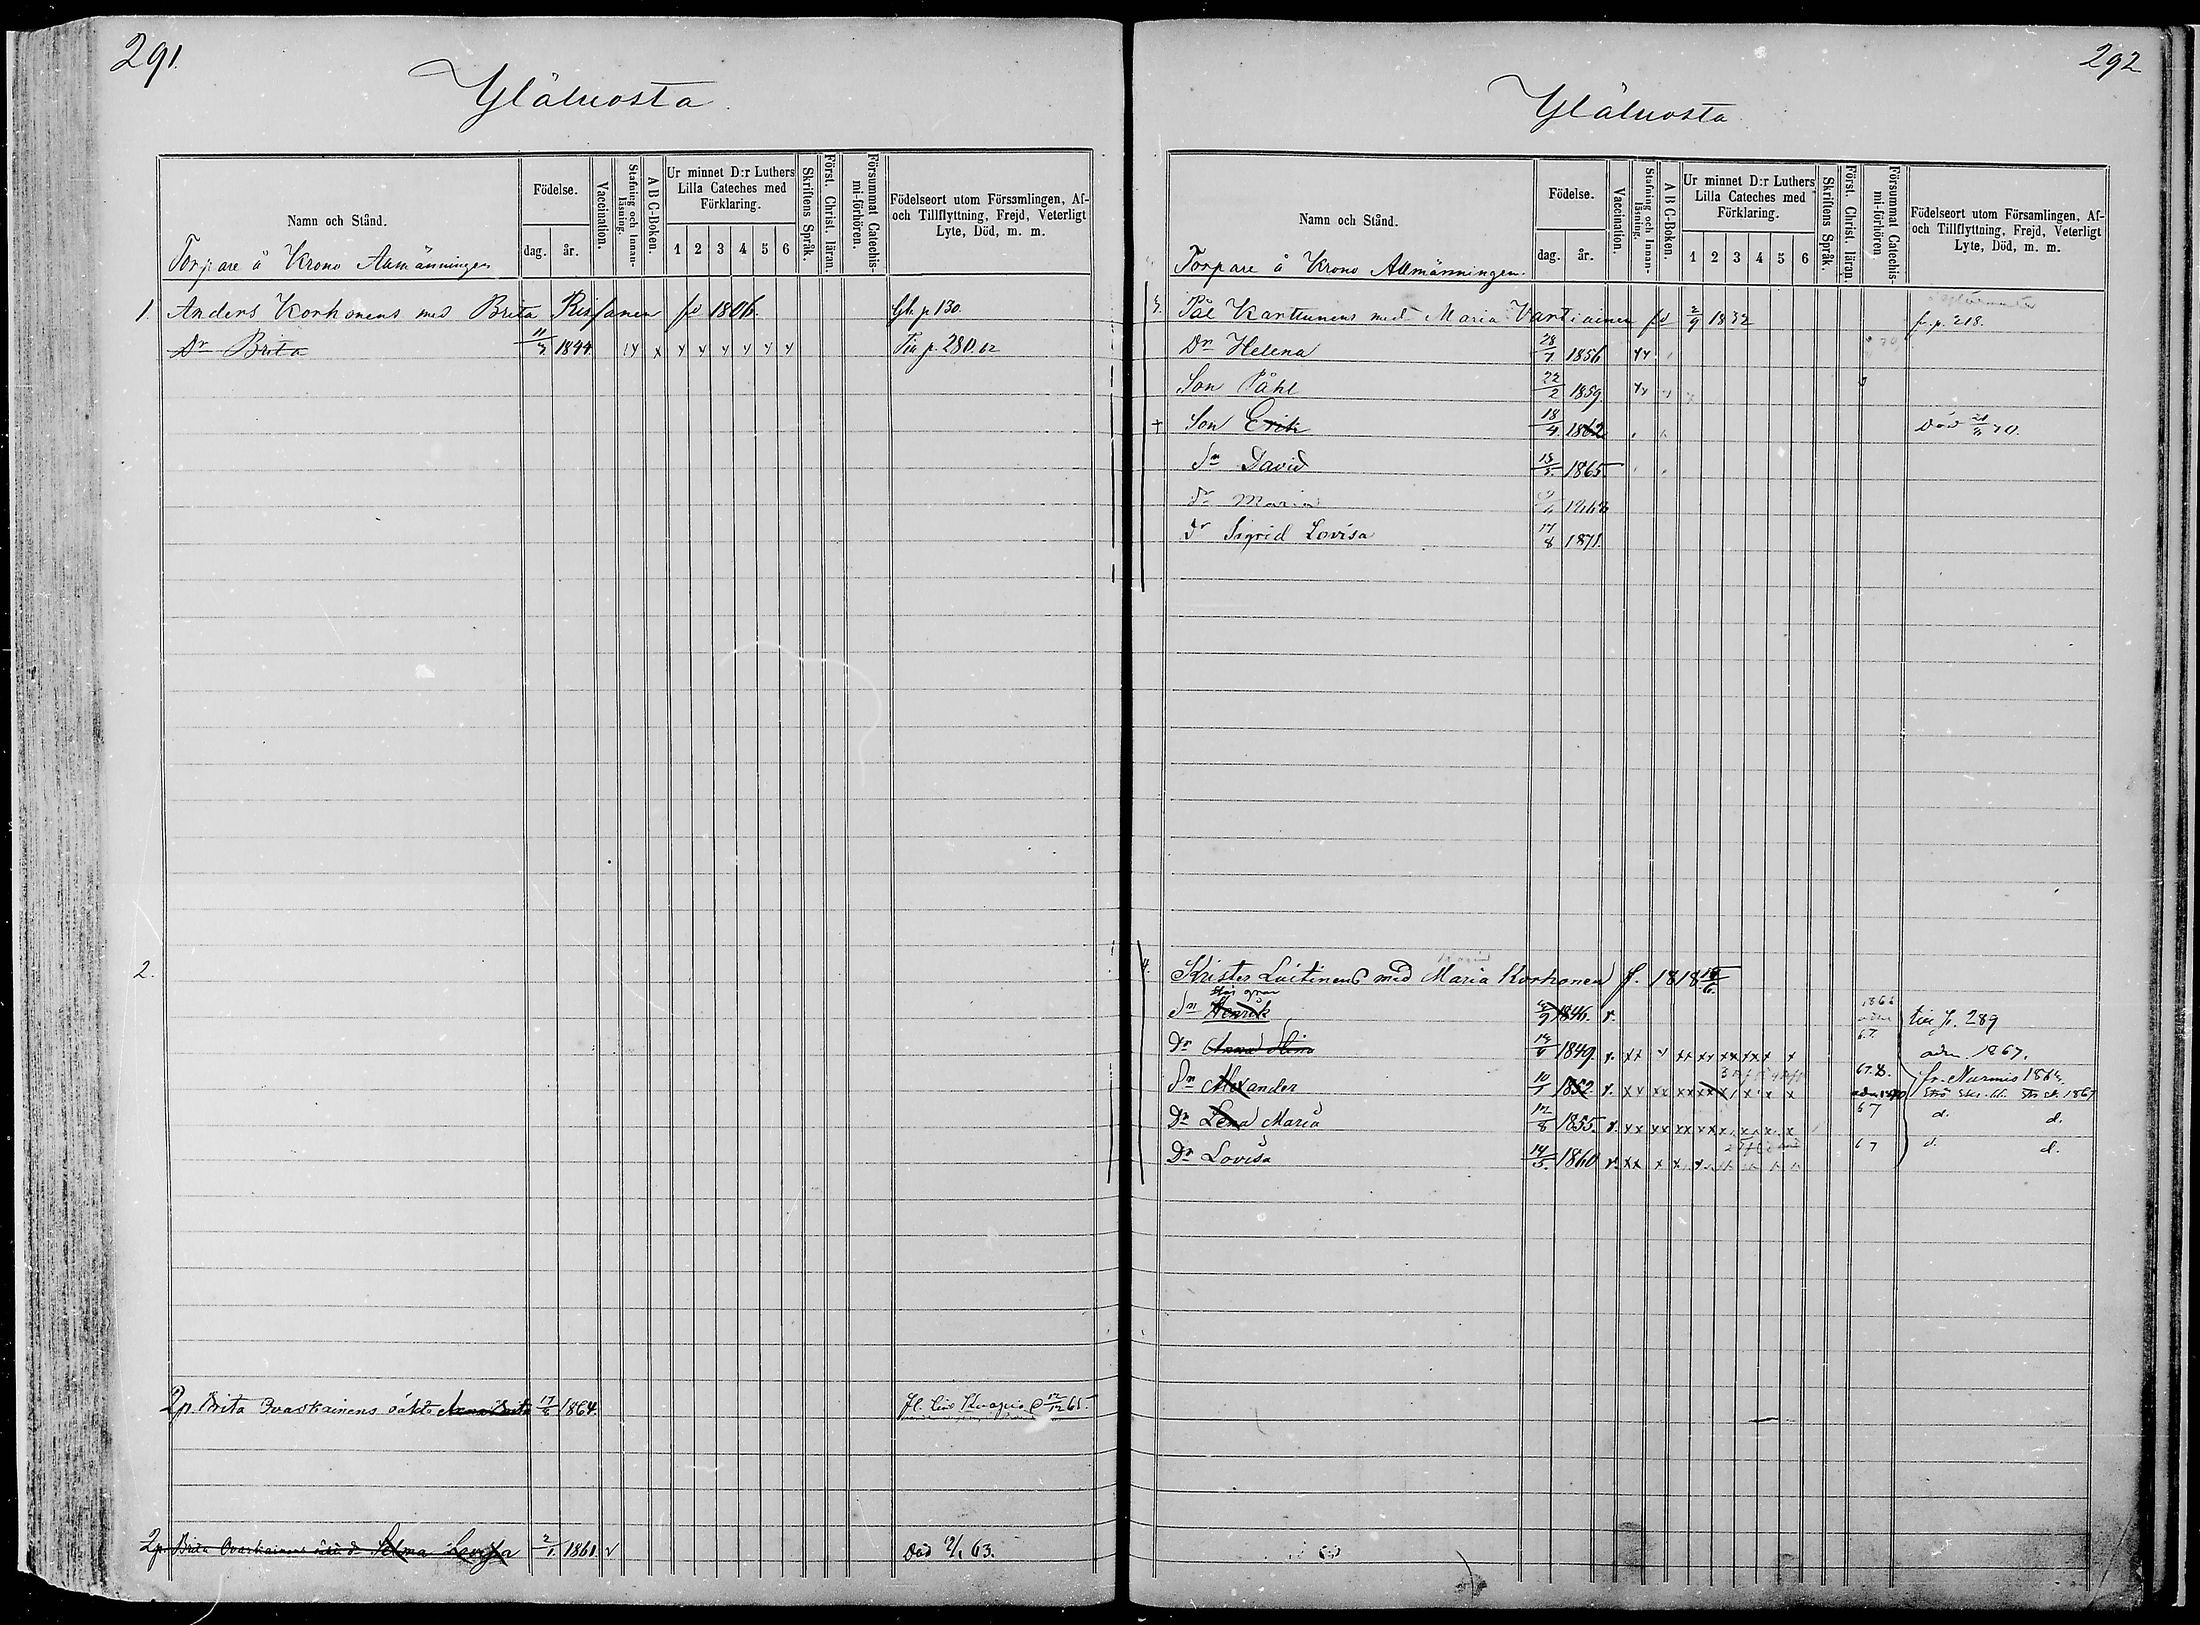 291.
Yläluosta.
Namn och Stånd.
Födelse.
dag. år.
Vaccination.
Stafning och Innan-läsning.
A B C-Boken.
Ur minnet D:r Luthers Lilla Cateches med Förklaring.
1 2 3 4 5 6
Skriftens Språk.
Först. Christ. läran.
Försummat Catechis-mi-förhören.
Födelseort utom Församlingen, Af- och Tillflyttning, Frejd, Veterligt Lyte, Död, m. m.
Torpare å Krono Allmänningen
1. Anders Korhonens med Brita Rissanen fd 1806. Gh. p 130.
Dr Brita 11/3 1844 Tia p. 280. 62
2.
2 p. Brita Ovaskainens oäkta Anna Brita 17/8 1864. fl. till Kuopio 12/12 65.
2 p. Brita Ovaskainens oäkta d. Selma Lovisa 2/1 1861. v Död 63.
292
Yläluosta
Namn och Stånd.
Födelse.
dag. år.
Vaccination.
Stafning och Innan-läsning.
A B C-Boken.
Ur minnet D:r Luthers Lilla Cateches med Förklaring.
1 2 3 4 5 6
Skriftens Språk.
Först. Christ. läran.
Försummat Catechis-mi-förhören
Födelseort utom Församlingen, Af- och Tillflyttning, Frejd, Veterligt Lyte, Död, m. m.
Torpare å Krono Allmänningen.
3. Pål Karttunens med Maria Vartiainen fd 2/9 1832 fr. p. 218.
Dr Helena 28/7 1856
Son Påhl 22/2 1859.
+ Son Erik 18/4 1862 död 70.
Sn David 1865
dr Maria
dr Sigrid Lovisa 17/8 1871.
4. Krister Luitinens med Maria Korhonen f. 1818
Sn Henrik 1846. 1866 tia p. 289
Dr Anna Stina 1849. 67. adm. 1867.
Sn Alexander 10/1 1852 67.8. fr. Nurmis
Dr Lena Maria 12/8 1855. 67 d. d.
Dr Lovisa 14/5 1860 67 d. d.